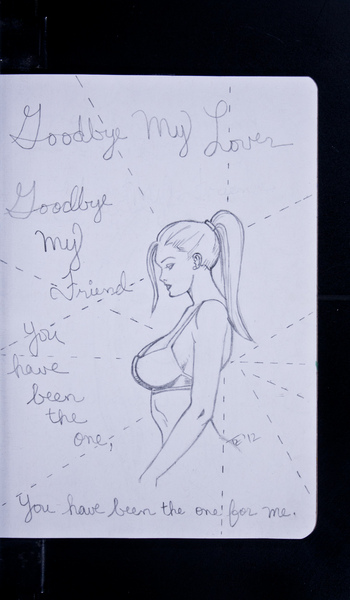 Goodbye My Lover
Goodbye
My
Friend
You
have
been
the
one,
'12
You have been the one for me.